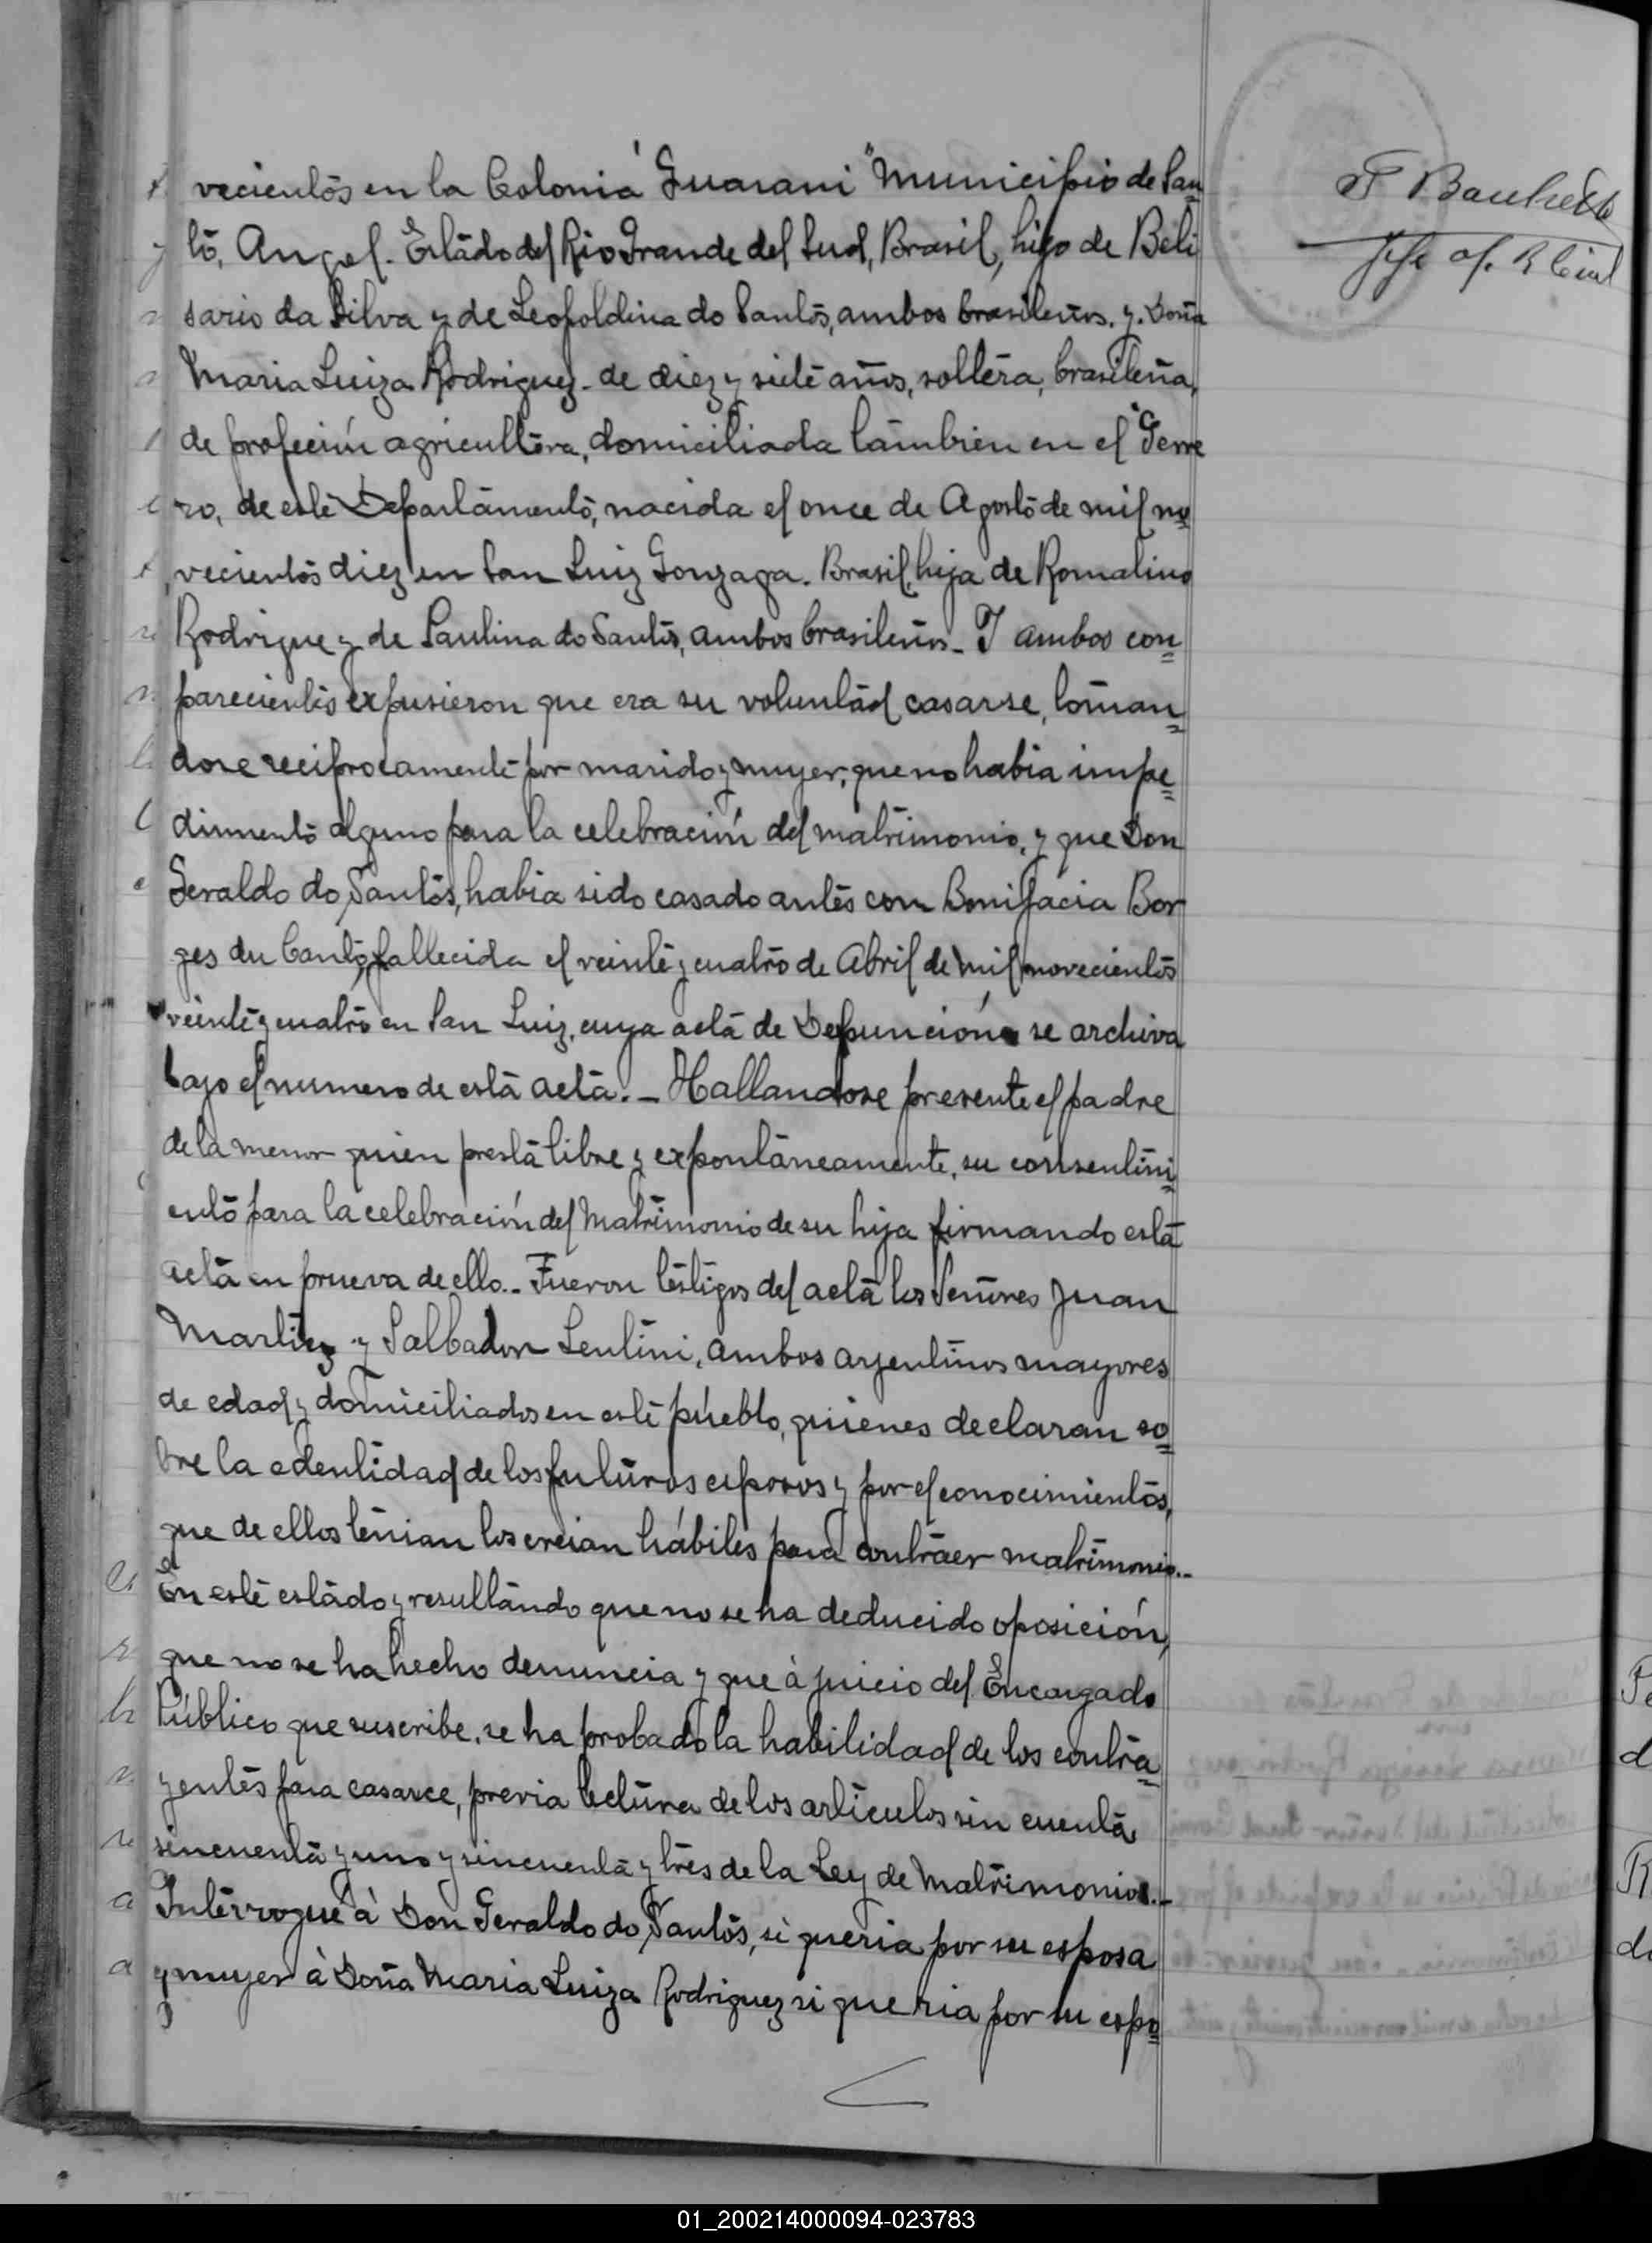 vecientos en la Colonia "Guarani" Municipio de San
to, Angel. Estado del Rio Grande del Sud, Brasil, hijo de Beli
sario da Silva y de Leopoldina do Santos, ambos brasileños. y. Doña
Maria Luiza Rodriguez. de diez y siete años, soltera, brasileña,
de profeción agricultora, domiciliada tambien en el "Cerre
ro, de este Departamento, nacida el once de Agosto de mil no
vecientos diez en San Luiz Gonzaga. Brasil, hija de Romalino
Rodriguez y de Paulina do Santos, ambos brasileños. Y ambos con
parecientes expusieron que era su voluntad casarse, toman
dose reciprocamente por marido y muyer, que no habia impe
dimento alguno para la celebración del matrimonio, y que Don
Geraldo do Santos, habia sido casado antes con Bonifacia Bor
ges du Canto, fallecida el veinte y cuatro de Abril de mil novecientos
veinte y cuatro en San Luiz, cuya acta de Defunción se archiva
bajo el numero de esta acta. Hallandose presente el padre
de la menor quien presta libre y expontaneamente, su consentimi
ento para la celebración del Matrimonio de su hija firmando esta
acta en prueva de ello. Fueron testigos del acta los Señores Juan
Martiez y Salbador Lentini, ambos argentinos mayores
de edad y domiciliados en este pueblo, quienes declaran so
bre la edentidad de los futuros esposos y por el conocimientos,
que de ellos tenian los creian hábiles para contraer matrimonio.
En este estado y resultando que no se ha deducido oposición,
que no se ha hecho denuncia y que à juicio del Encargado
Público que suscribe, se ha probado la habilidad de los contra
yentes para casarce, previa lectura de los articulos sin cuenta,
sincuenta y uno y sincuenta y tres de la Ley de Matrimonios.
Interrogué à Don Geraldo do Santos, si queria por su esposa
y muyer à Doña Maria Luiza Rodriguez si queria por su espo
Jefe of. R Civil
01_200214000094-023783